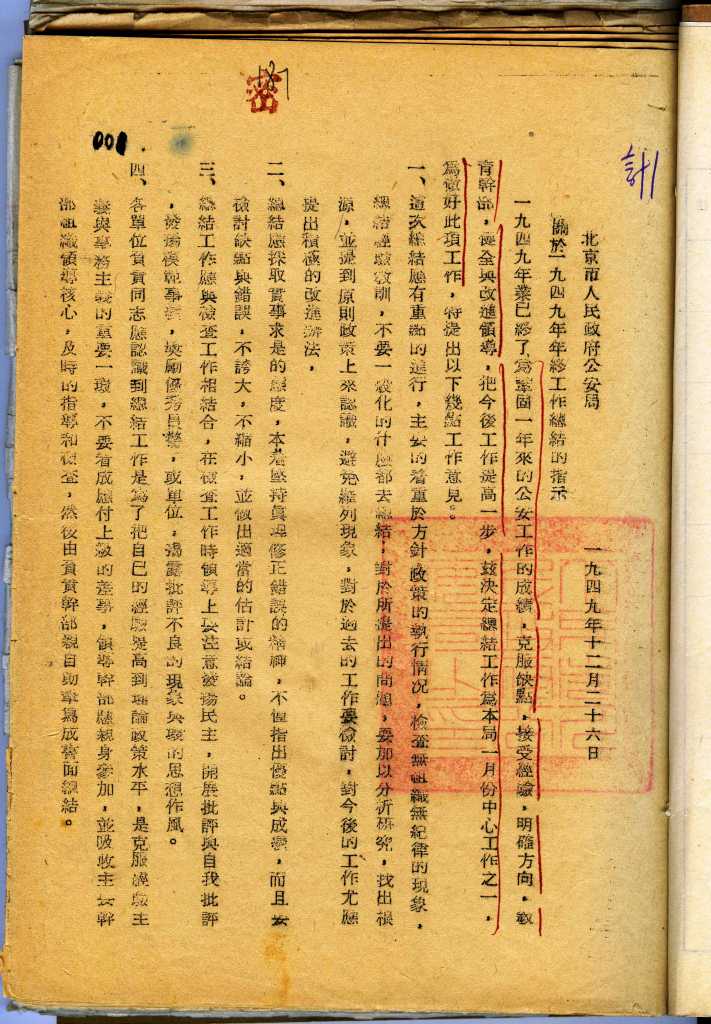 密
187
001
計
北京市人民政府公安局
關於一九四九年年終工作總結的指示
一九四九年十二月二十六日
一九四九年業已終了,為鞏固一年來的公安工作的成績,克服缺點,接受經驗,明確方向,教
育幹部,健全與改進領導,把今後工作提高一步,茲決定總結工作為本局一月份中心工作之一,
為做好此項工作,特提出以下幾點工作意見。
一、這次總結應有重點的進行,主要的着重於方針,政策的執行情况,檢查無組織無紀律的現象,
總結經驗教訓,不要一般化的什麼都去總結,對於所提出的問題,要加以分析研究,找出根
源,並提到原則政策上來認識,避免羅列現象,對於過去的工作要檢討,對今後的工作尤應
提出積極的改進辦法,
二、總結應採取實事求是的態度,本着堅持真理修正錯誤的精神,不僅指出優點與成績,而且要
檢討缺點與錯誤,不誇大,不縮小,並做出適當的估計或結論。
三、總結工作應與檢查工作相結合,在檢查工作時領導上要注意發揚民主,開展批評與自我批評
,發揚模範事蹟,獎勵優秀員警,或單位,揭露批評不良的現象與壞的思想作風。
四、各單位負責同志應認識到總結工作是為了把自己的經驗提高到理論政策水平,是克服經驗主
義與事務主義的重要一環,不要看成應付上級的差事,領導幹部應親身參加,並吸收主要幹
部組織領導核心,及時的指導和檢查,然後由負責幹部親自動筆寫成書面總結。